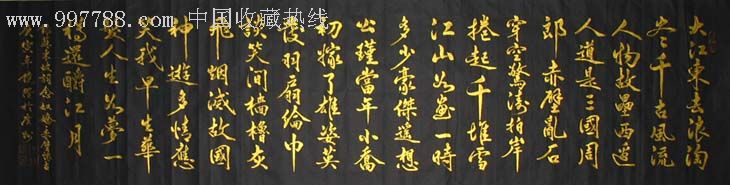 www.997788.com 中国收藏热线
大江東去浪淘
盡千古風流
人物故壘西邊
人道是三國周
郎赤壁亂石
穿空驚濤拍岸
捲起千堆雪
江山如畫一時
多少豪傑遙想
公瑾當年小喬
初嫁了雄姿英
發羽扇綸巾
談笑間檣櫓灰
飛煙滅故國
神遊多情應
笑我早生華
髮人生如夢一
樽還酹江月